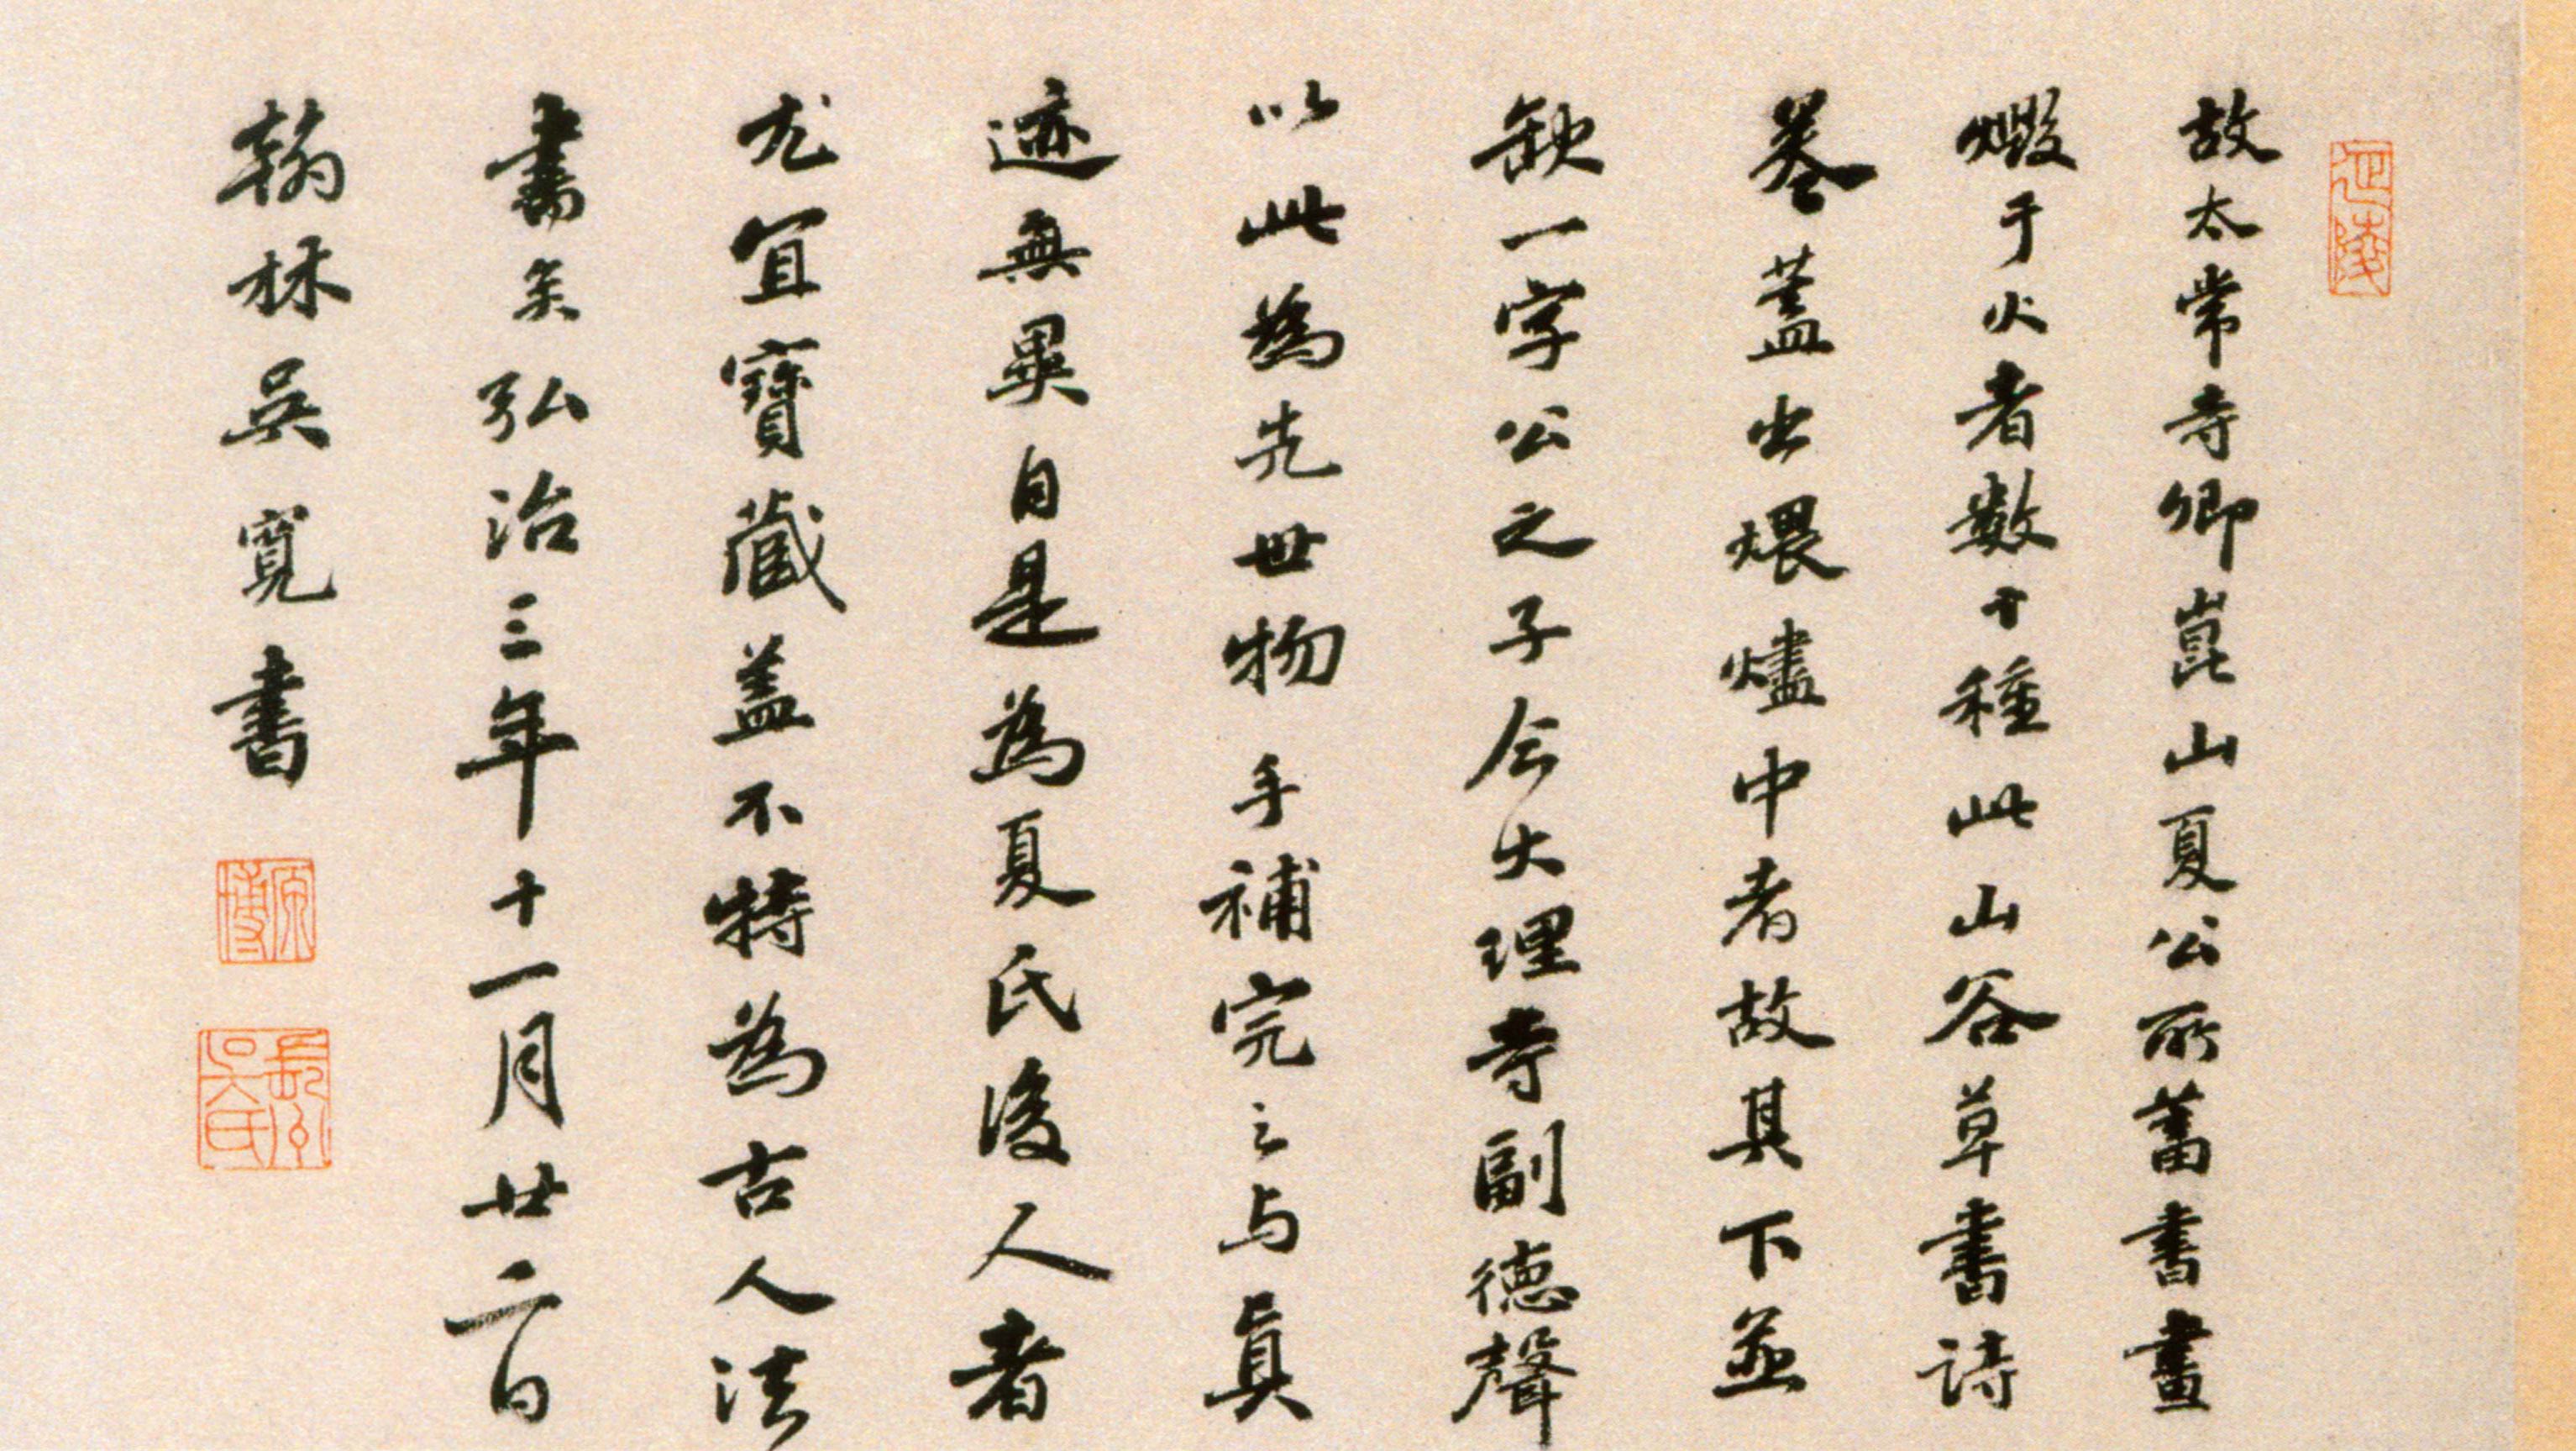 延陵
故太常寺卿崑山夏公所蓄書畫
燬于火者數十種此山谷草書詩
卷蓋出煨燼中者故其下並
缺一字公之子今大理寺副德聲
以此為先世物手補完之与真
迹無異自是為夏氏後人者
尤宜寶藏盖不特為古人法
書矣弘治三年十一月廿二日
翰林吳寬書
原博
長洲吳氏